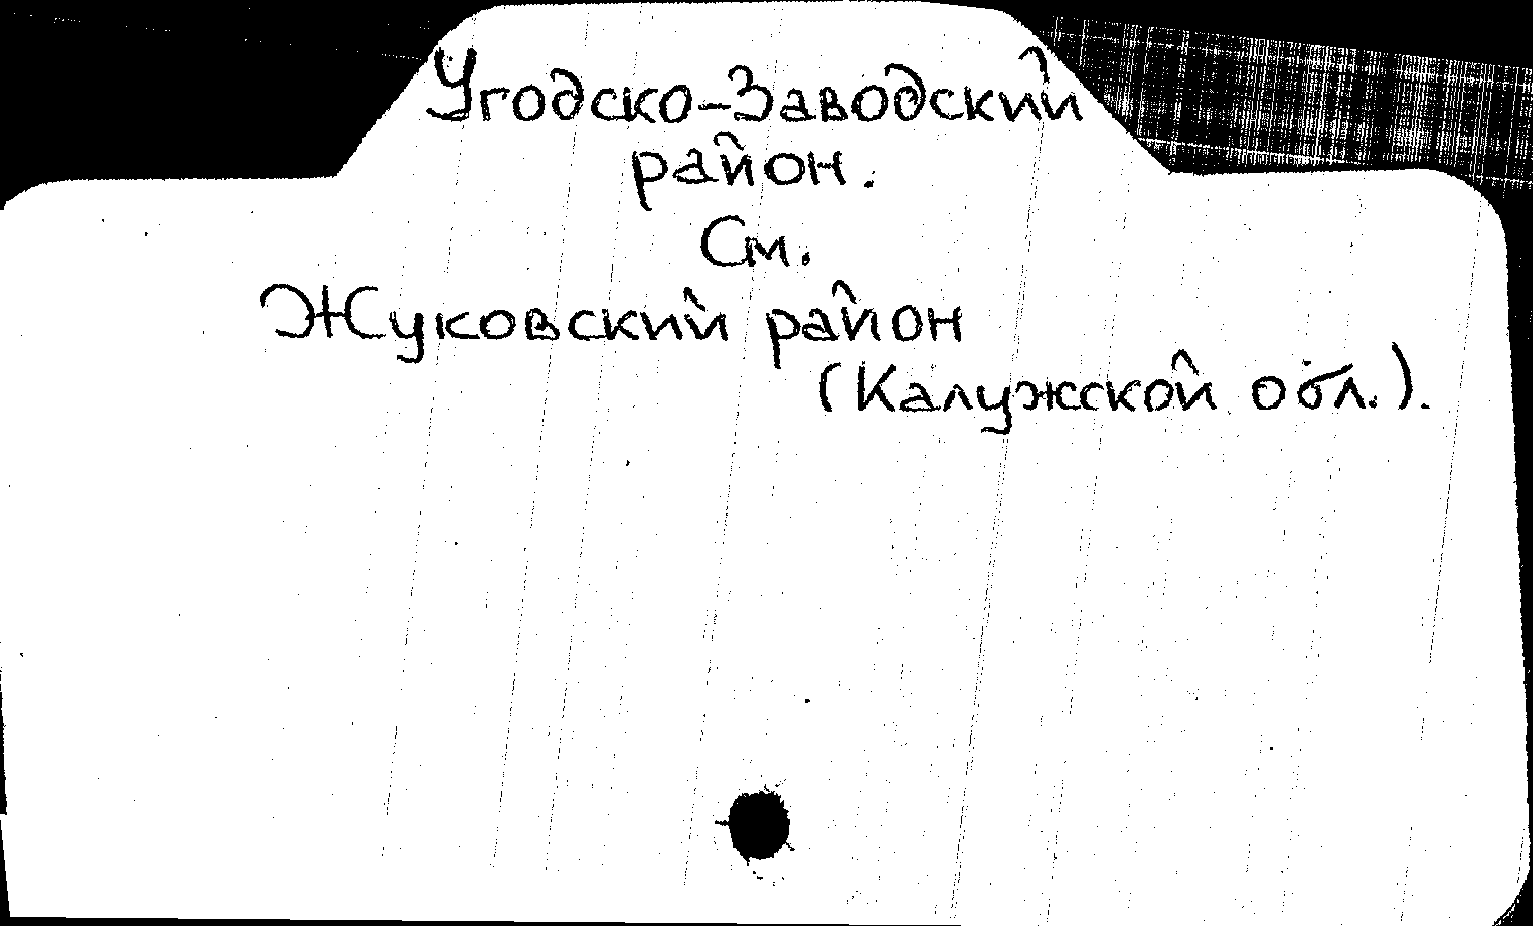 Угодско-Заводский
район.
См.
Жуковский район
(Калужской обл.).